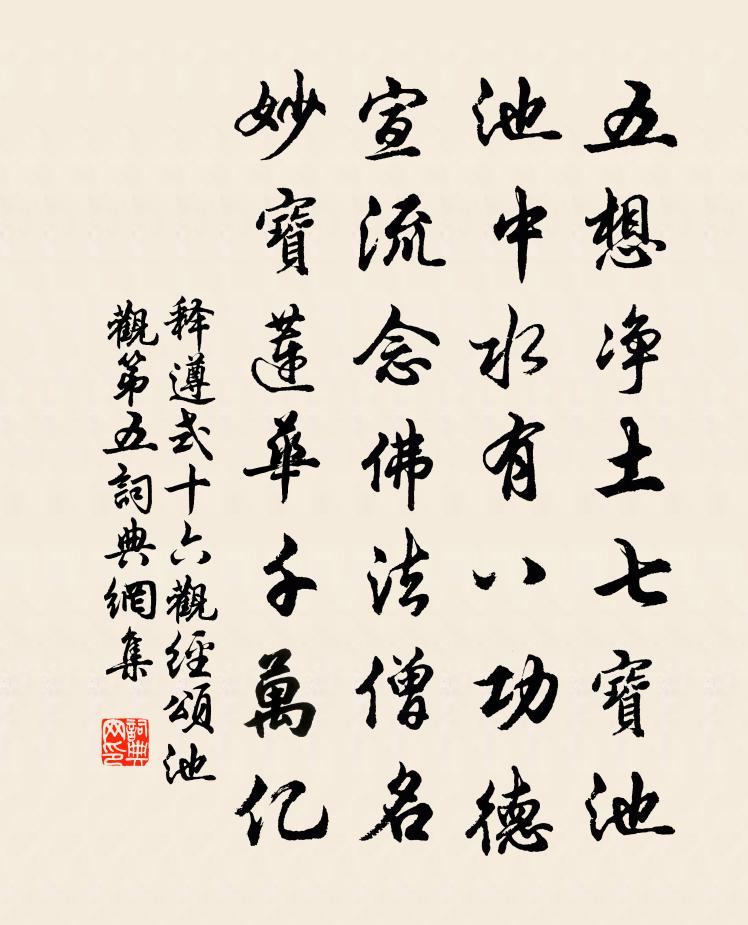 五想净土七寶池
池中水有八功德
宣流念佛法僧名
妙寶蓮華千萬亿
释遵式十六觀經頌池
觀第五詞典網集
詞典
网印